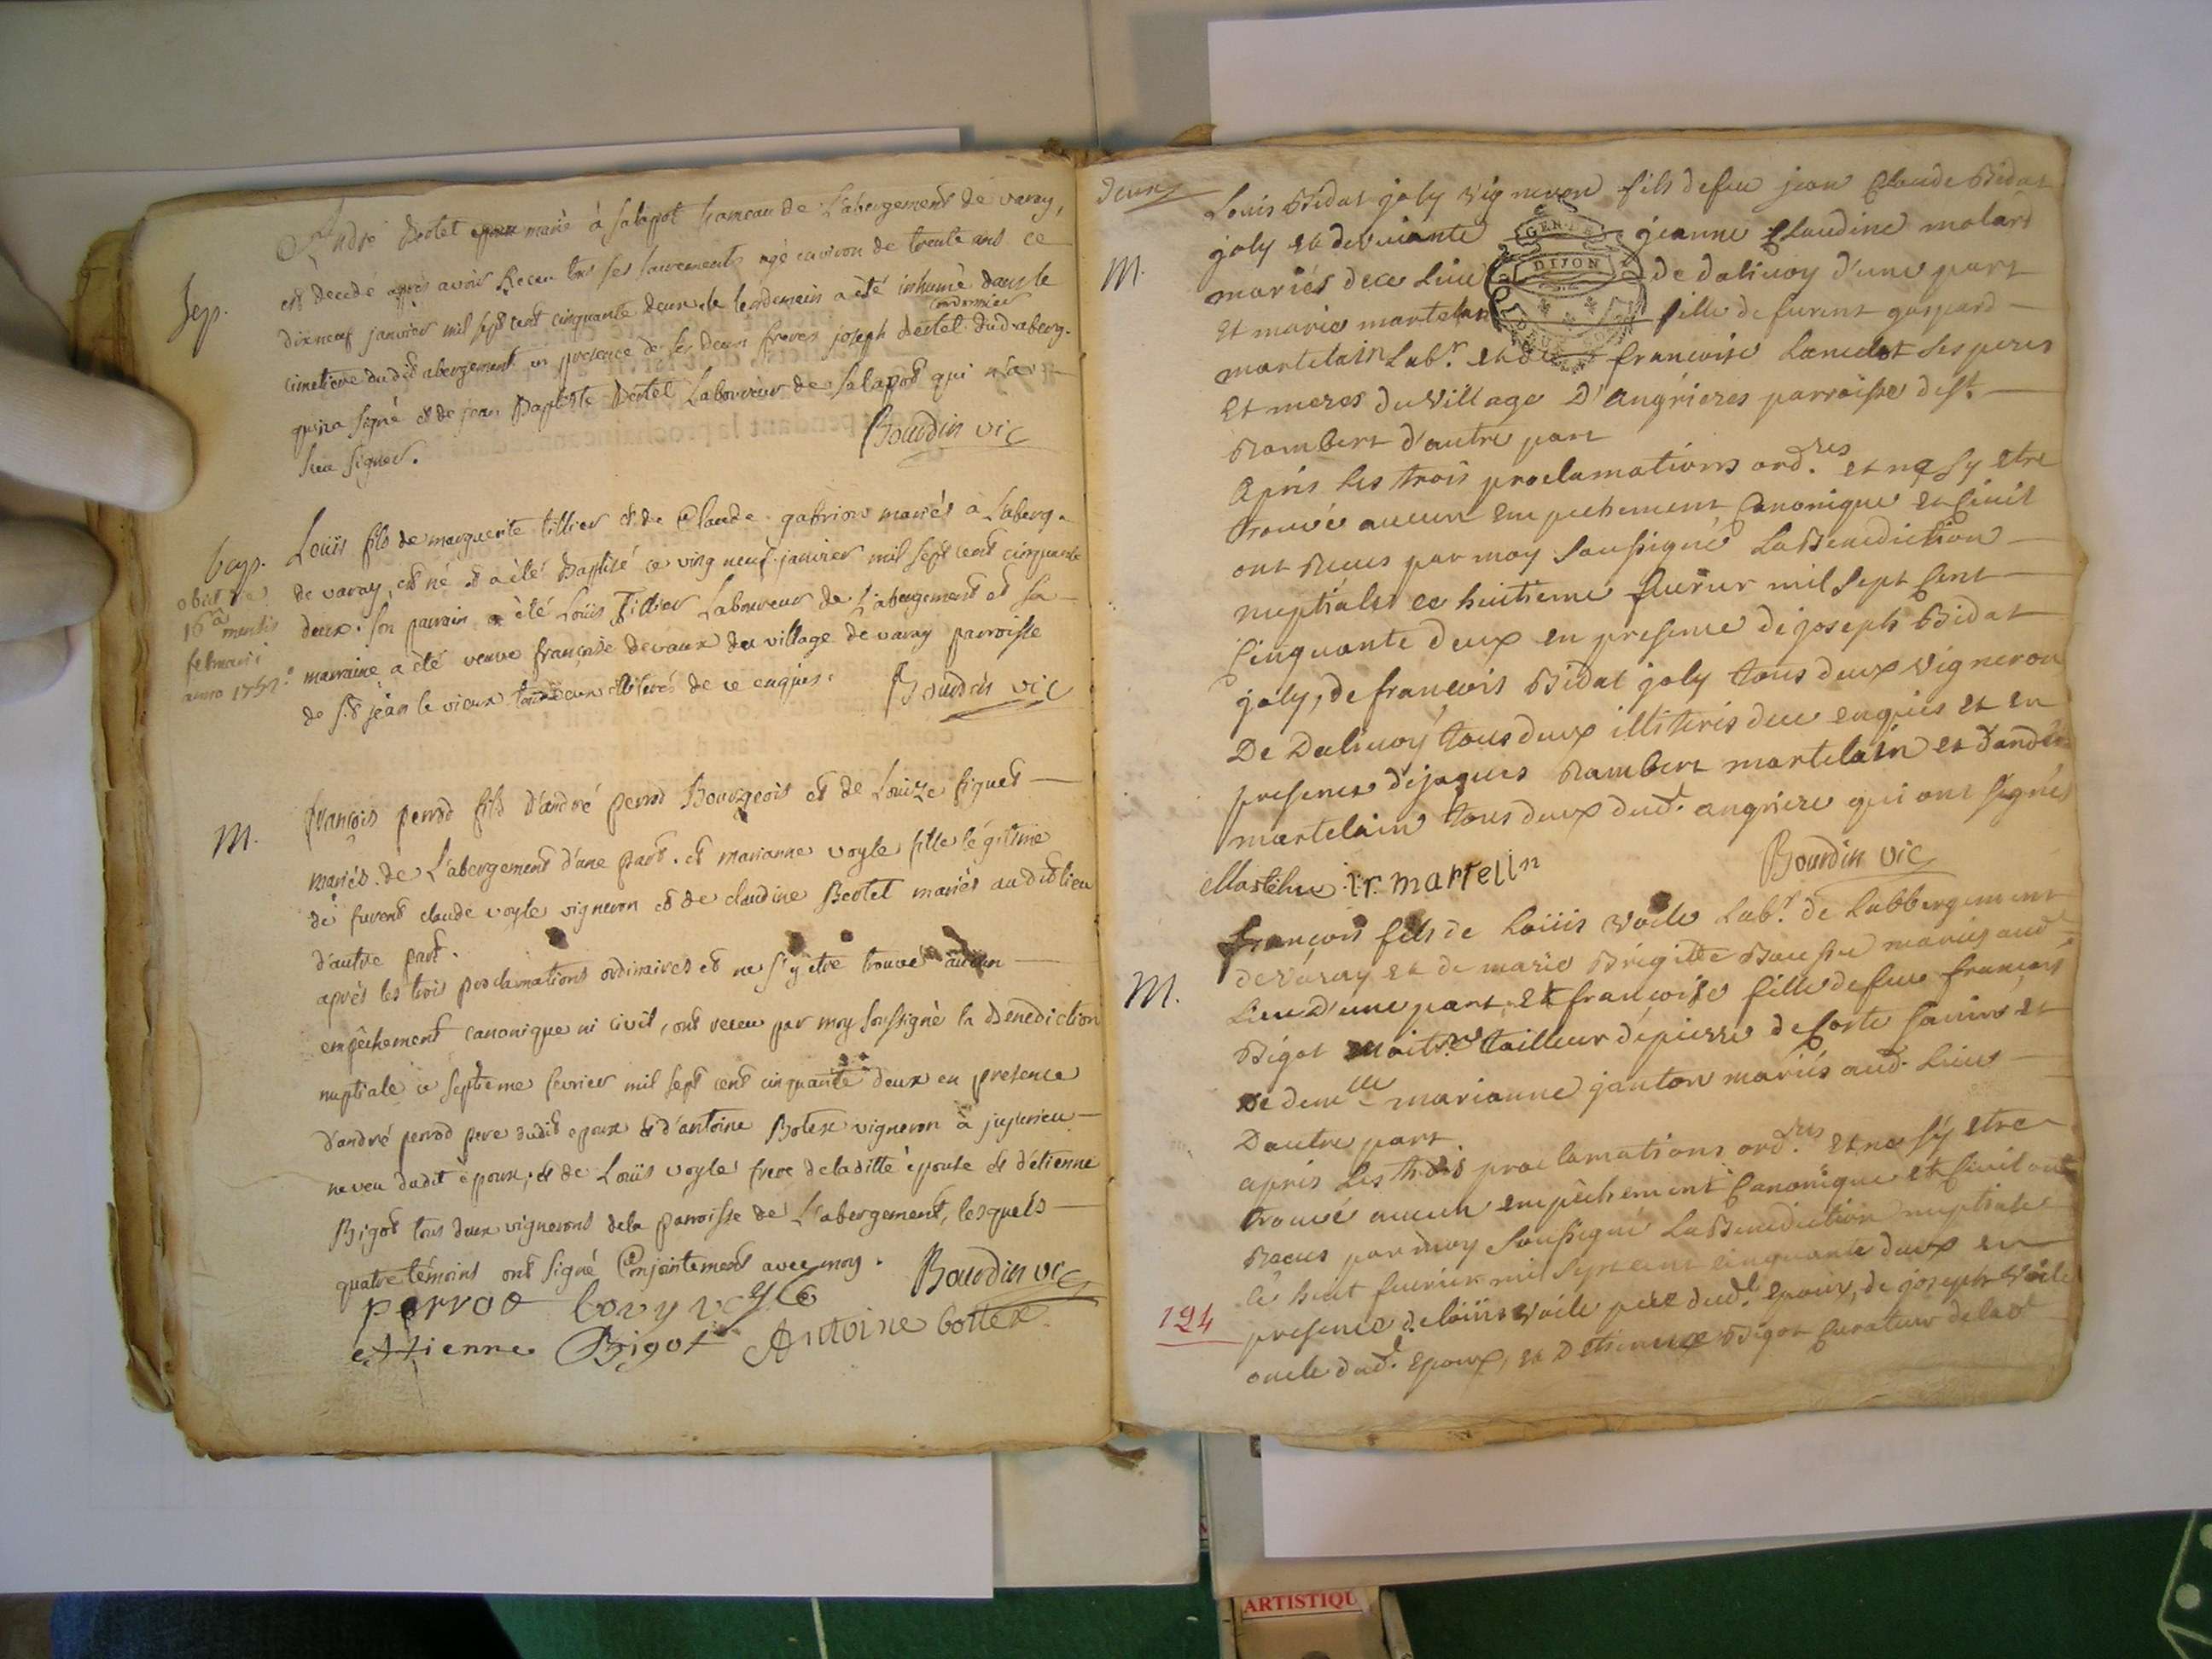 André Bertet marié à Salapot hameau de L'abergement de varay,
Sep.
est décédé après avoir Receu tous ses sacrements agé environ de trente ans ce
dixneuf janvier mil sept cent cinquante deux et le lendemain a été inhumé dans le
cordonnier
cimetiere dudit abergement en presence de ses deux freres joseph Bertet dud. aberg.
qui n'a signé et de jean Baptiste Bertet Laboureur de Salapot qui n'a
sceu signer.
Bourdin vic
bap.
Loüis fils de marguerite tillier et de Claude gabrion mariés à L'aberg.
obiit die
16â mensis
februarii
anno 1752.
de varay, est né et a été Baptisé ce vingt neuf janvier mil sept cent cinquante
deux. son parrain a été Loüis Tillier Laboureur de L'abergement et sa
marraine a été veuve françoise devaux du village de varay parroisse
de st jean le vieux tous deux illiterés de ce enquis.
Bourdin vic
M.
françois perrod fils d'andré perrod Bourgeois et de Louize figuet
mariés de L'abergement d'une part. et marianne voyle fille légitime
de furent claude voyle vigneron et de claudine Bertet mariés audit lieu
d'autre part.
après les trois proclamations ordinaires et ne s'y etre trouvé aucun
empêchement canonique ni civil, ont receu par moy soussigné la Benediction
nuptiale ce septieme fevrier mil sept cent cinquante deux en presence
d'andré perrod pere dudit epoux et d'antoine Botex vigneron à jujurieu
neveu dudit époux, et de Loüis voyle frere de laditte épouse et d'étienne
Bigot tous deux vignerons de la parroisse de L'abergement, lesquels
quatre témoins ont signé Conjointement avec moy.
Bourdin vic
perrod
Etienne Bigot Antoine bottex
deux
Louis Bidat joly vigneron fils de feu jean Claude Bidat
joly et de vivante jeanne Claudine molard
M.
mariés de ce lieu de dalivoy d'une part
GEN. DE
DIJON
Et marie martelain fille de furent gaspard
martelain Labr. et de francoise Lancelot ses peres
Et meres du village D'angrieres parroisse de st.
Rambert d'autre part
Apres les trois proclamations ord.res et ne sy etre
trouvé aucun empechement Canonique et Civil
ont Recus par moy soussigné La Benediction
nuptiale ce huitieme fevrier mil sept Cent
Cinquante deux en presence de joseph Bidat
joly, de francois Bidat joly tous deux vigneron
De Dalivoy tous deux illiteris de ce enquis et en
presence de jaques Rambert martelain et d'andré
martelain tous deux dud. angriere qui ont signés
Bourdin vic
françois fils de Loüis voile Labr. de Labbergement
de Varay et de marie Brigitte mariés aud
M.
Lieu d'une part, et francoise fille de feu francois
Bigot maitre tailleur de pierre de et
de demlle marianne janton mariés aud. Lieu
Dautre part
apres Les trois proclamations ord.res et ne sy etre
trouvé aucun empêchement Canonique et Civil ont
Recus par moy soussigné La Benediction nuptiale
Ce huit fevrier mil sept cent cinquante deux en
presence de loüis voile père dud. Epoux, de joseph voile
124
oncle dud. Epoux, et Detienne Bigot Curateur de lad
ARTISTIQU